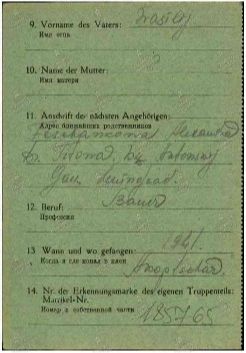 9. Vorname des Vaters: Wasilij
Имя отца
10. Name der Mutter: ?
Имя матери
11. Anschrift der nächsten Angehörigen:
Адрес ближайших родственников
Alexandra
D.
Gau Leningrad.
12. Beruf: Bauer
Профессия
13 Wann und wo gefangen: 1941.
Когда и где попал в плен
14. Nr. der Erkennungsmarke des eigenen Truppenteils:
Marikel-Nr.
Номер в собственной части 185765